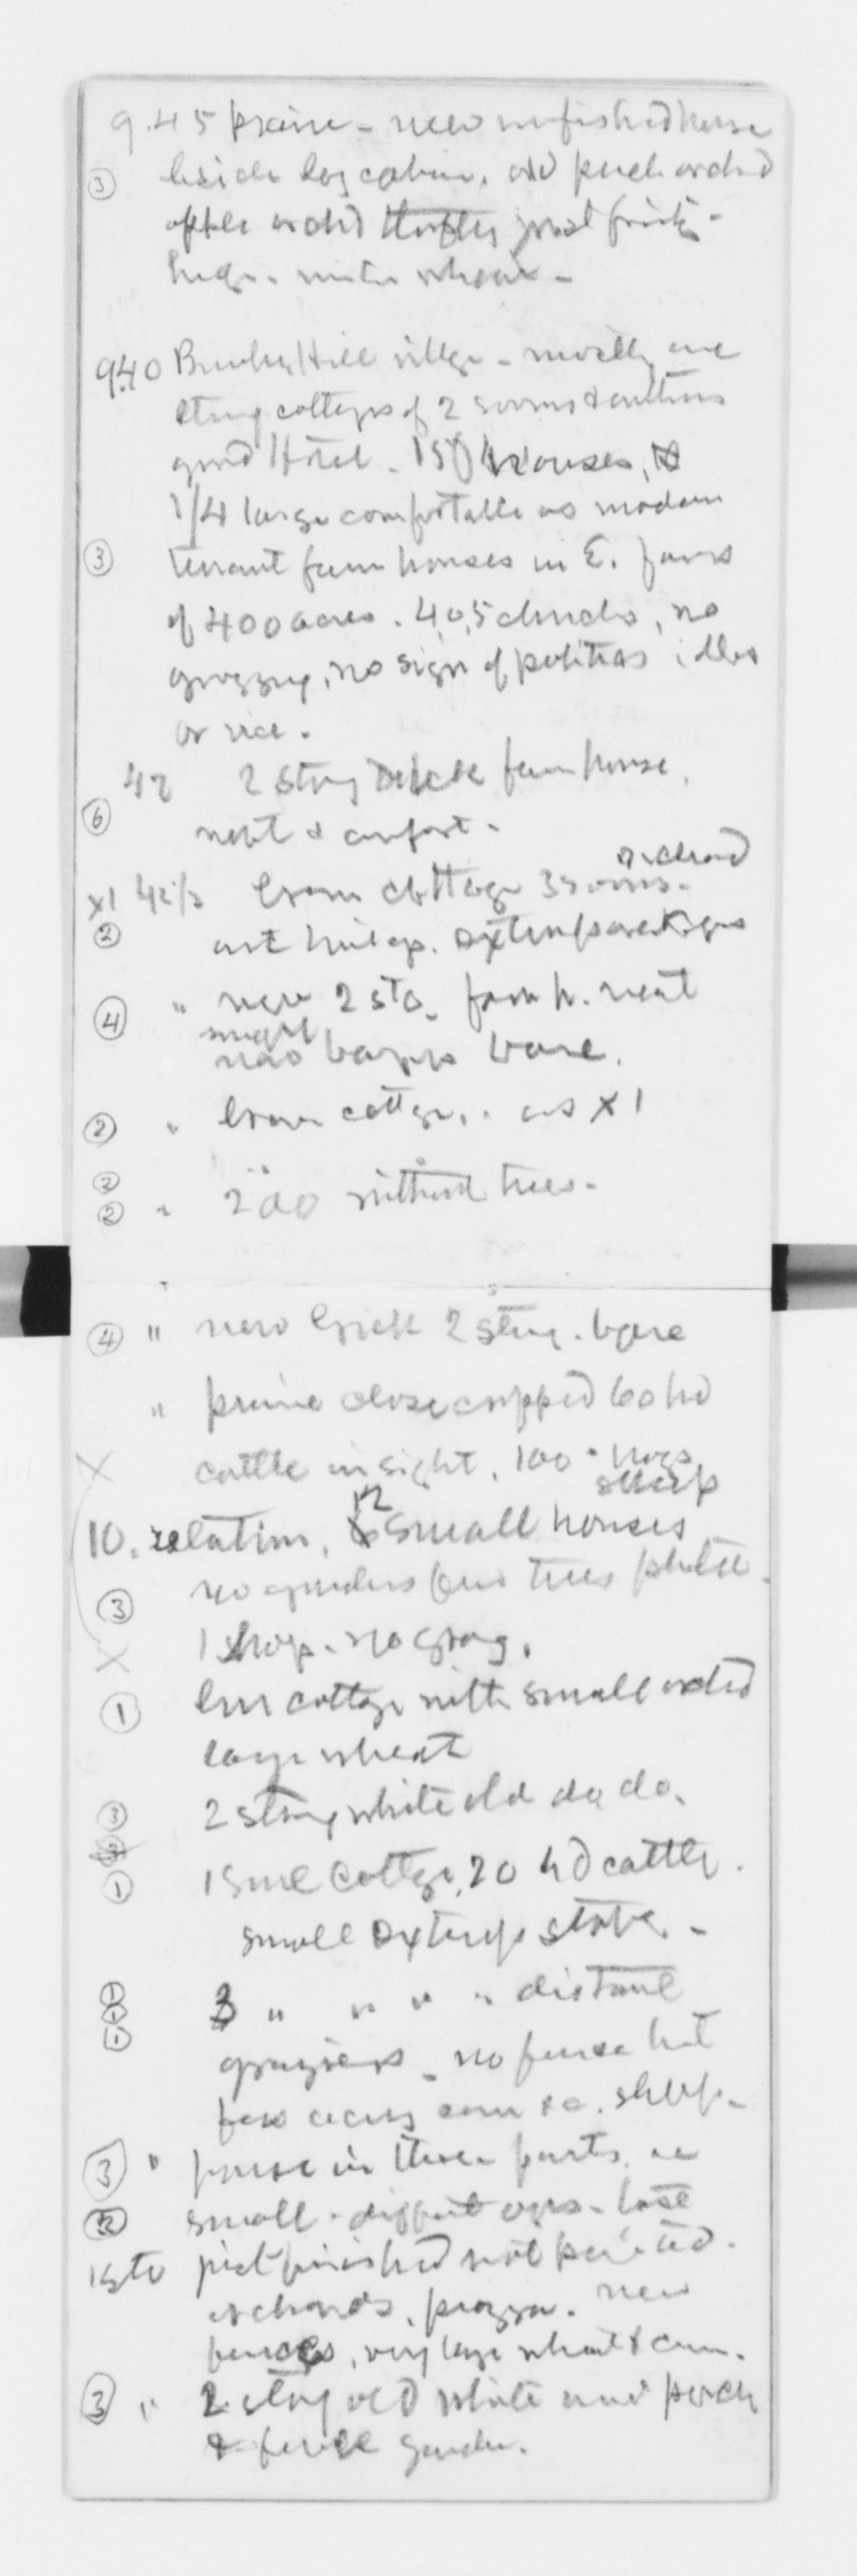 9.45 prairie - new unfinished house
③ beside log cabin, old peach orchd
apple orchd thrifty just fruitg -
hedge. winter wheat -
9.40 Bunker Hill village - mostly one
story cottages of 2 rooms &
good Hotel. 150 houses,
1/4 large comfortable as modern
③ tenant farm houses in E. farms
of 400 acres. 4 or 5 churches, no
groggery, no sign of idlers
or vice.
42 2 story brick farm house,
⑥ neat & comfort.
orchard
x1 42 1/2 brown cottage 3 rooms.
②
④ " new 2 sto. farm h. neat
small
bare.
② " brown cottage, . as x 1
②
② " 2 do without trees -
④ " new brick 2 story. bare
" prairie close cropped 60 hd
X cattle in sight. 100 " hogs
sheep
12
10. station, small houses
③ no gardens few trees planted -
X 1 shop - no grog.
① cottage with small orchd
large wheat
③ 2 story white old do do.
① 1 small cottage, 20 hd cattle.
small stable -
① ① ① 3 " " " " distant
graziers - no fence but
few acres corn &c. sheep -
③ " house in these parts are
② small - different ages - last
1 sto just finished not painted.
orchards, piazza. new
fences, very large wheat & corn.
③ " 2 story old white and porch
& fence garden.